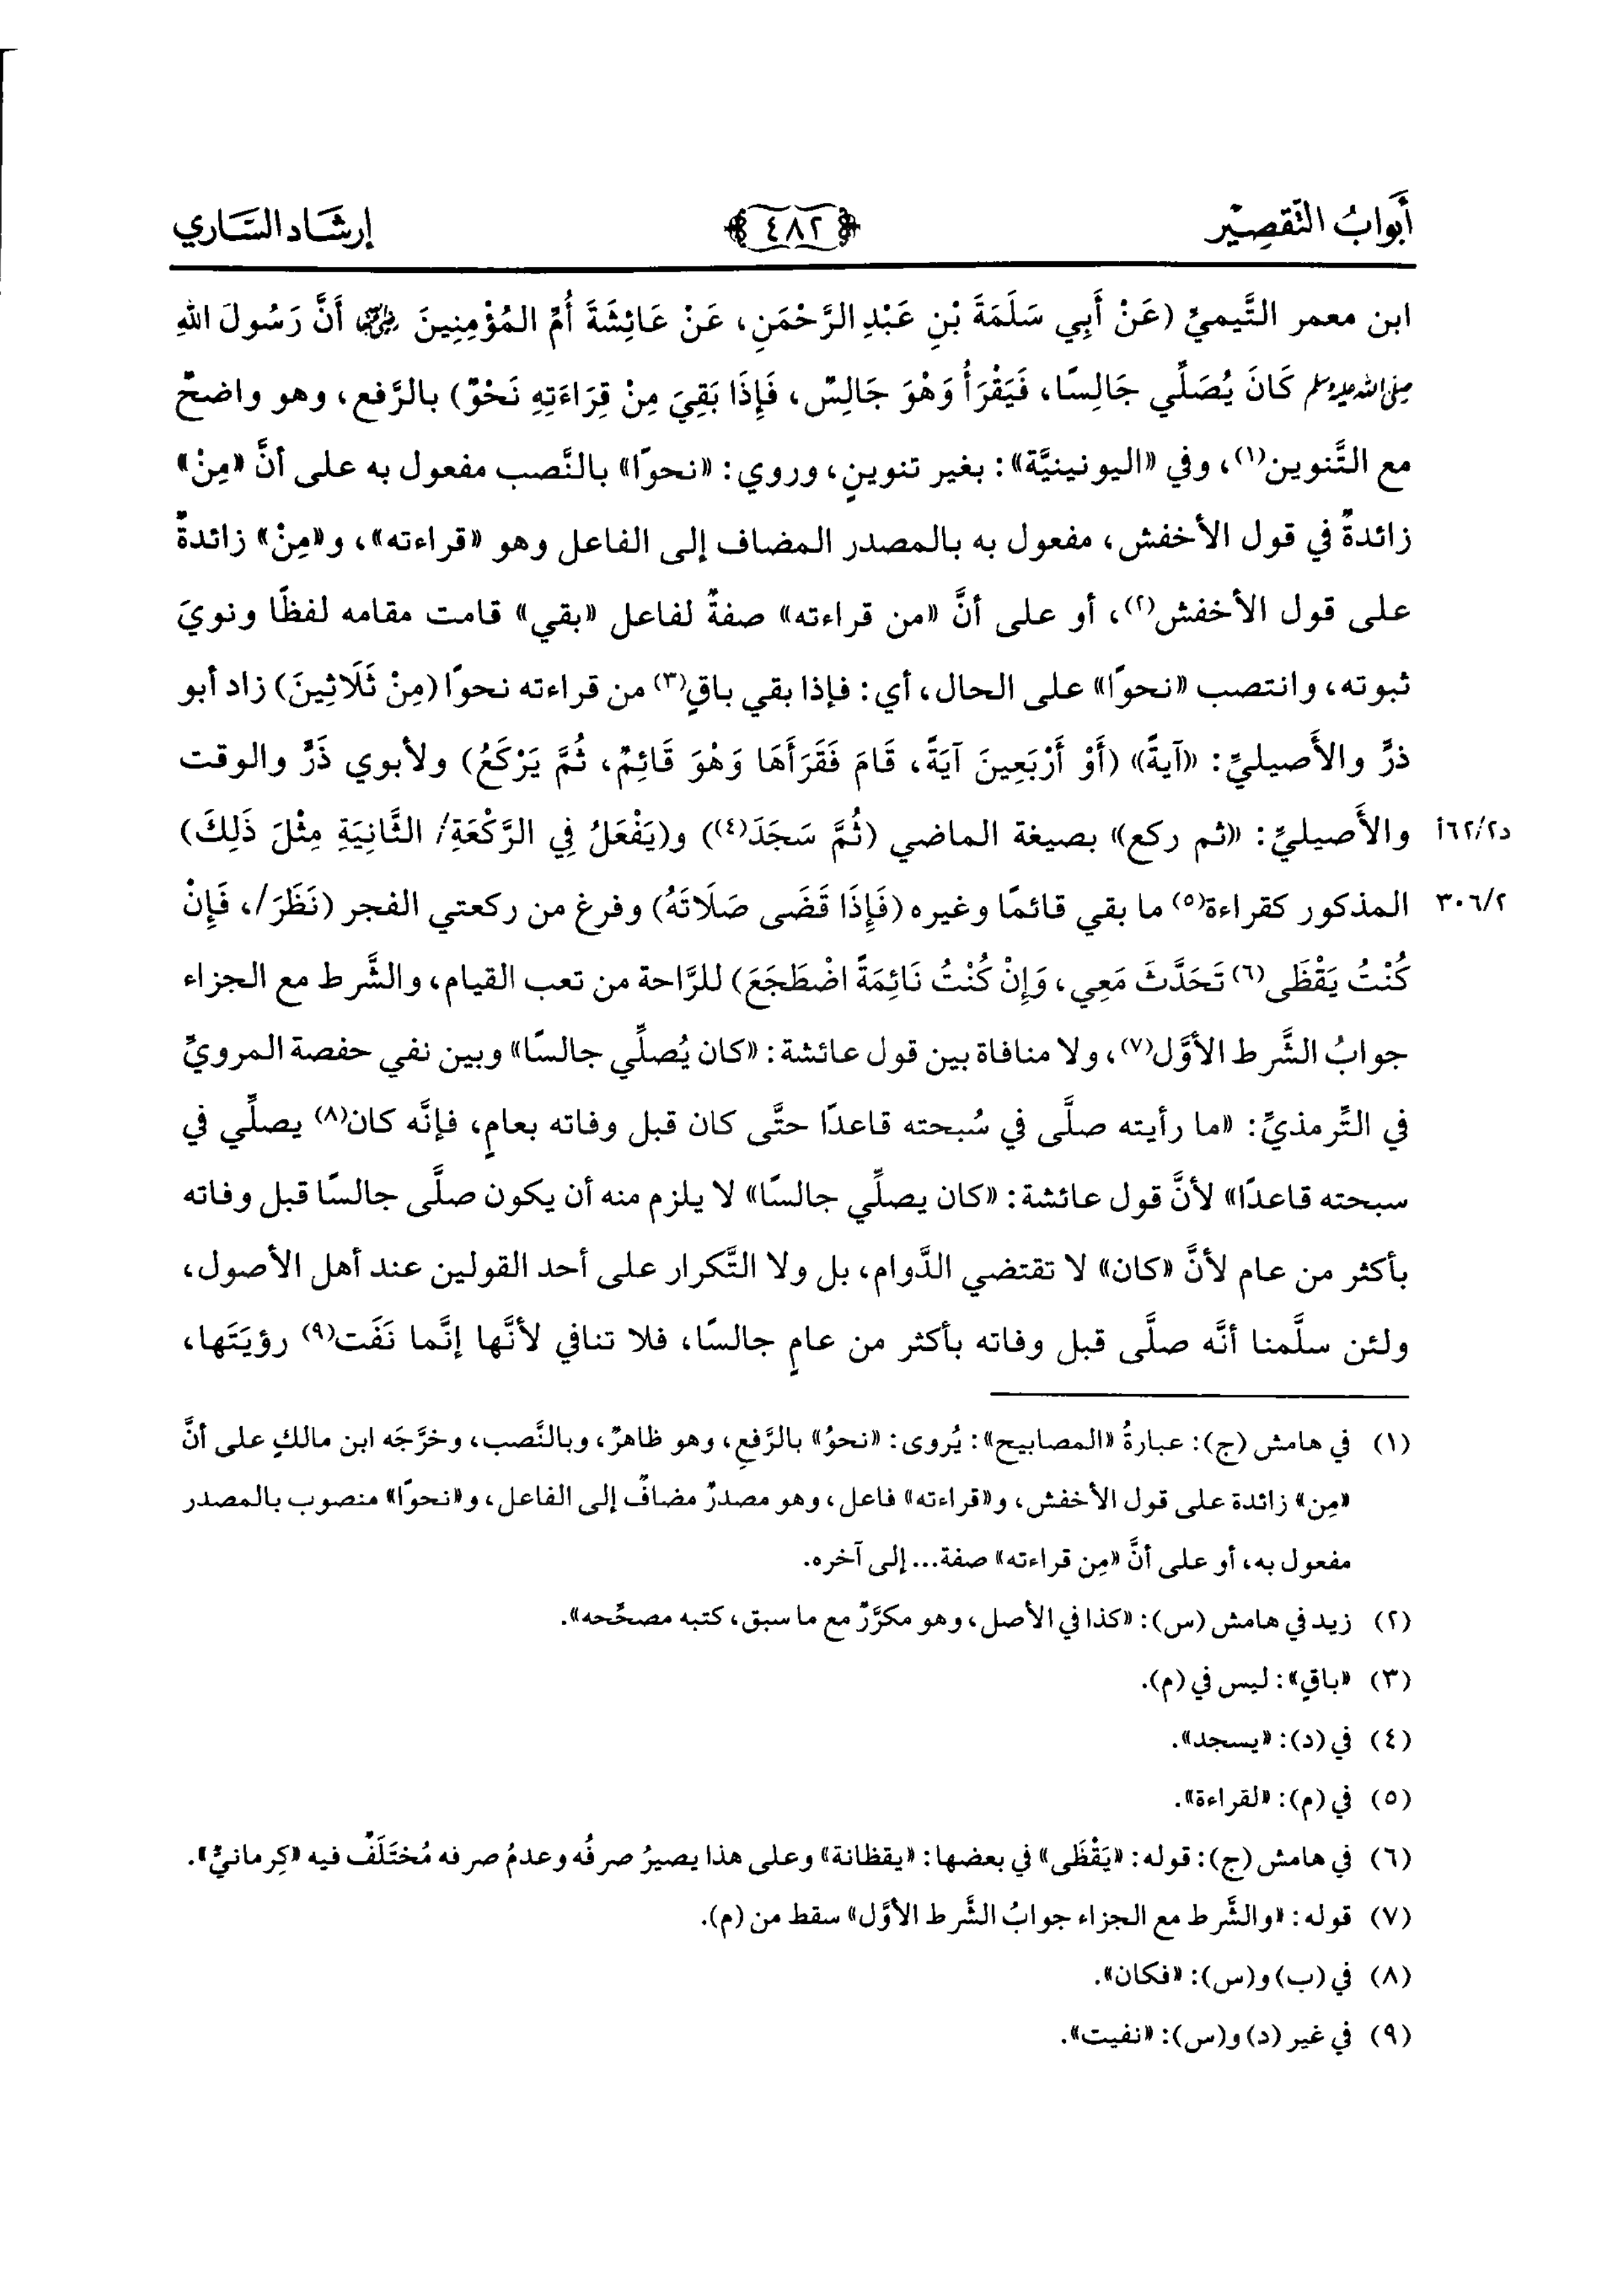 أَبوابُ التَّقصِيْر
٤٨٢
إرشَاد السَّاري
ابن معمر التَّيميِّ (عَنْ أَبِي سَلَمَةَ بْنِ عَبْدِ الرَّحْمَنِ، عَنْ عَائِشَةَ أُمِّ المُؤْمِنِينَ رضي الله عنها أَنَّ رَسُولَ اللهِ
صلى الله عليه وسلم كَانَ يُصَلِّي جَالِسًا، فَيَقْرَأُ وَهْوَ جَالِسٌ، فَإِذَا بَقِيَ مِنْ قِرَاءَتِهِ نَحْوٌ) بالرَّفع، وهو واضحٌ
مع التَّنوين(١)، وفي «اليونينيَّة»: بغير تنوينٍ، وروي: «نحوًا» بالنَّصب مفعول به على أنَّ «مِنْ»
زائدةٌ في قول الأخفش، مفعول به بالمصدر المضاف إلى الفاعل وهو «قراءته»، و«مِنْ» زائدةٌ
على قول الأخفش(٢)، أو على أنَّ «من قراءته» صفةٌ لفاعل «بقي» قامت مقامه لفظًا ونويَ
ثبوته، وانتصب «نحوًا» على الحال، أي: فإذا بقي باقٍ(٣) من قراءته نحوًا (مِنْ ثَلَاثِينَ) زاد أبو
ذرٍّ والأَصيليِّ: «آيةً» (أَوْ أَرْبَعِينَ آيَةً، قَامَ فَقَرَأَهَا وَهْوَ قَائِمٌ، ثُمَّ يَرْكَعُ) ولأبوي ذَرٍّ والوقت
والأَصيليِّ: «ثم ركع» بصيغة الماضي (ثُمَّ سَجَدَ(٤)) و(يَفْعَلُ فِي الرَّكْعَةِ/ الثَّانِيَةِ مِثْلَ ذَلِكَ) د٦٢/٢أ
المذكور كقراءة(٥) ما بقي قائمًا وغيره (فَإِذَا قَضَى صَلَاتَهُ) وفرغ من ركعتي الفجر (نَظَرَ/، فَإِنْ ٣٠٦/٢
كُنْتُ يَقْظَى(٦) تَحَدَّثَ مَعِي، وَإِنْ كُنْتُ نَائِمَةً اضْطَجَعَ) للرَّاحة من تعب القيام، والشَّرط مع الجزاء
جوابُ الشَّرط الأوَّل(٧)، ولا منافاة بين قول عائشة: «كان يُصلِّي جالسًا» وبين نفي حفصة المرويِّ
في التِّرمذيِّ: «ما رأيته صلَّى في سُبحته قاعدًا حتَّى كان قبل وفاته بعامٍ، فإنَّه كان(٨) يصلِّي في
سبحته قاعدًا» لأنَّ قول عائشة: «كان يصلِّي جالسًا» لا يلزم منه أن يكون صلَّى جالسًا قبل وفاته
بأكثر من عام لأنَّ «كان» لا تقتضي الدَّوام، بل ولا التَّكرار على أحد القولين عند أهل الأصول،
ولئن سلَّمنا أنَّه صلَّى قبل وفاته بأكثر من عامٍ جالسًا، فلا تنافي لأنَّها إنَّما نَفَت(٩) رؤيَتَها،
(١) في هامش (ج): عبارةُ «المصابيح»: يُروى: «نحوُ» بالرَّفعِ، وهو ظاهرٌ، وبالنَّصب، وخرَّجَه ابن مالكٍ على أنَّ
«مِن» زائدة على قول الأخفش، و«قراءته» فاعل، وهو مصدرٌ مضافٌ إلى الفاعل، و«نحوًا» منصوب بالمصدر
مفعول به، أو على أنَّ «مِن قراءته» صفة... إلى آخره.
(٢) زيد في هامش (س): «كذا في الأصل، وهو مكرَّرٌ مع ما سبق، كتبه مصحِّحه».
(٣) «باقٍ»: ليس في (م).
(٤) في (د): «يسجد».
(٥) في (م): «لقراءة».
(٦) في هامش (ج): قوله: «يَقْظَى» في بعضها: «يقظانة» وعلى هذا يصيرُ صرفُه وعدمُ صرفه مُختَلَفٌ فيه «كِرمانيّ».
(٧) قوله: «والشَّرط مع الجزاء جوابُ الشَّرط الأوَّل» سقط من (م).
(٨) في (ب) و(س): «فكان».
(٩) في غير (د) و(س): «نفيت».